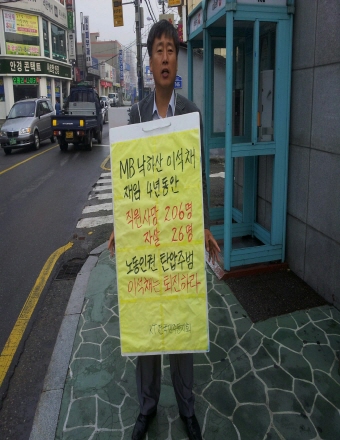 안경 콘택트
MB 낙하산 이석채
재임 4년동안
직원사망 206명
자살 26명
노동인권 탄압주범
이석채는 퇴진하라